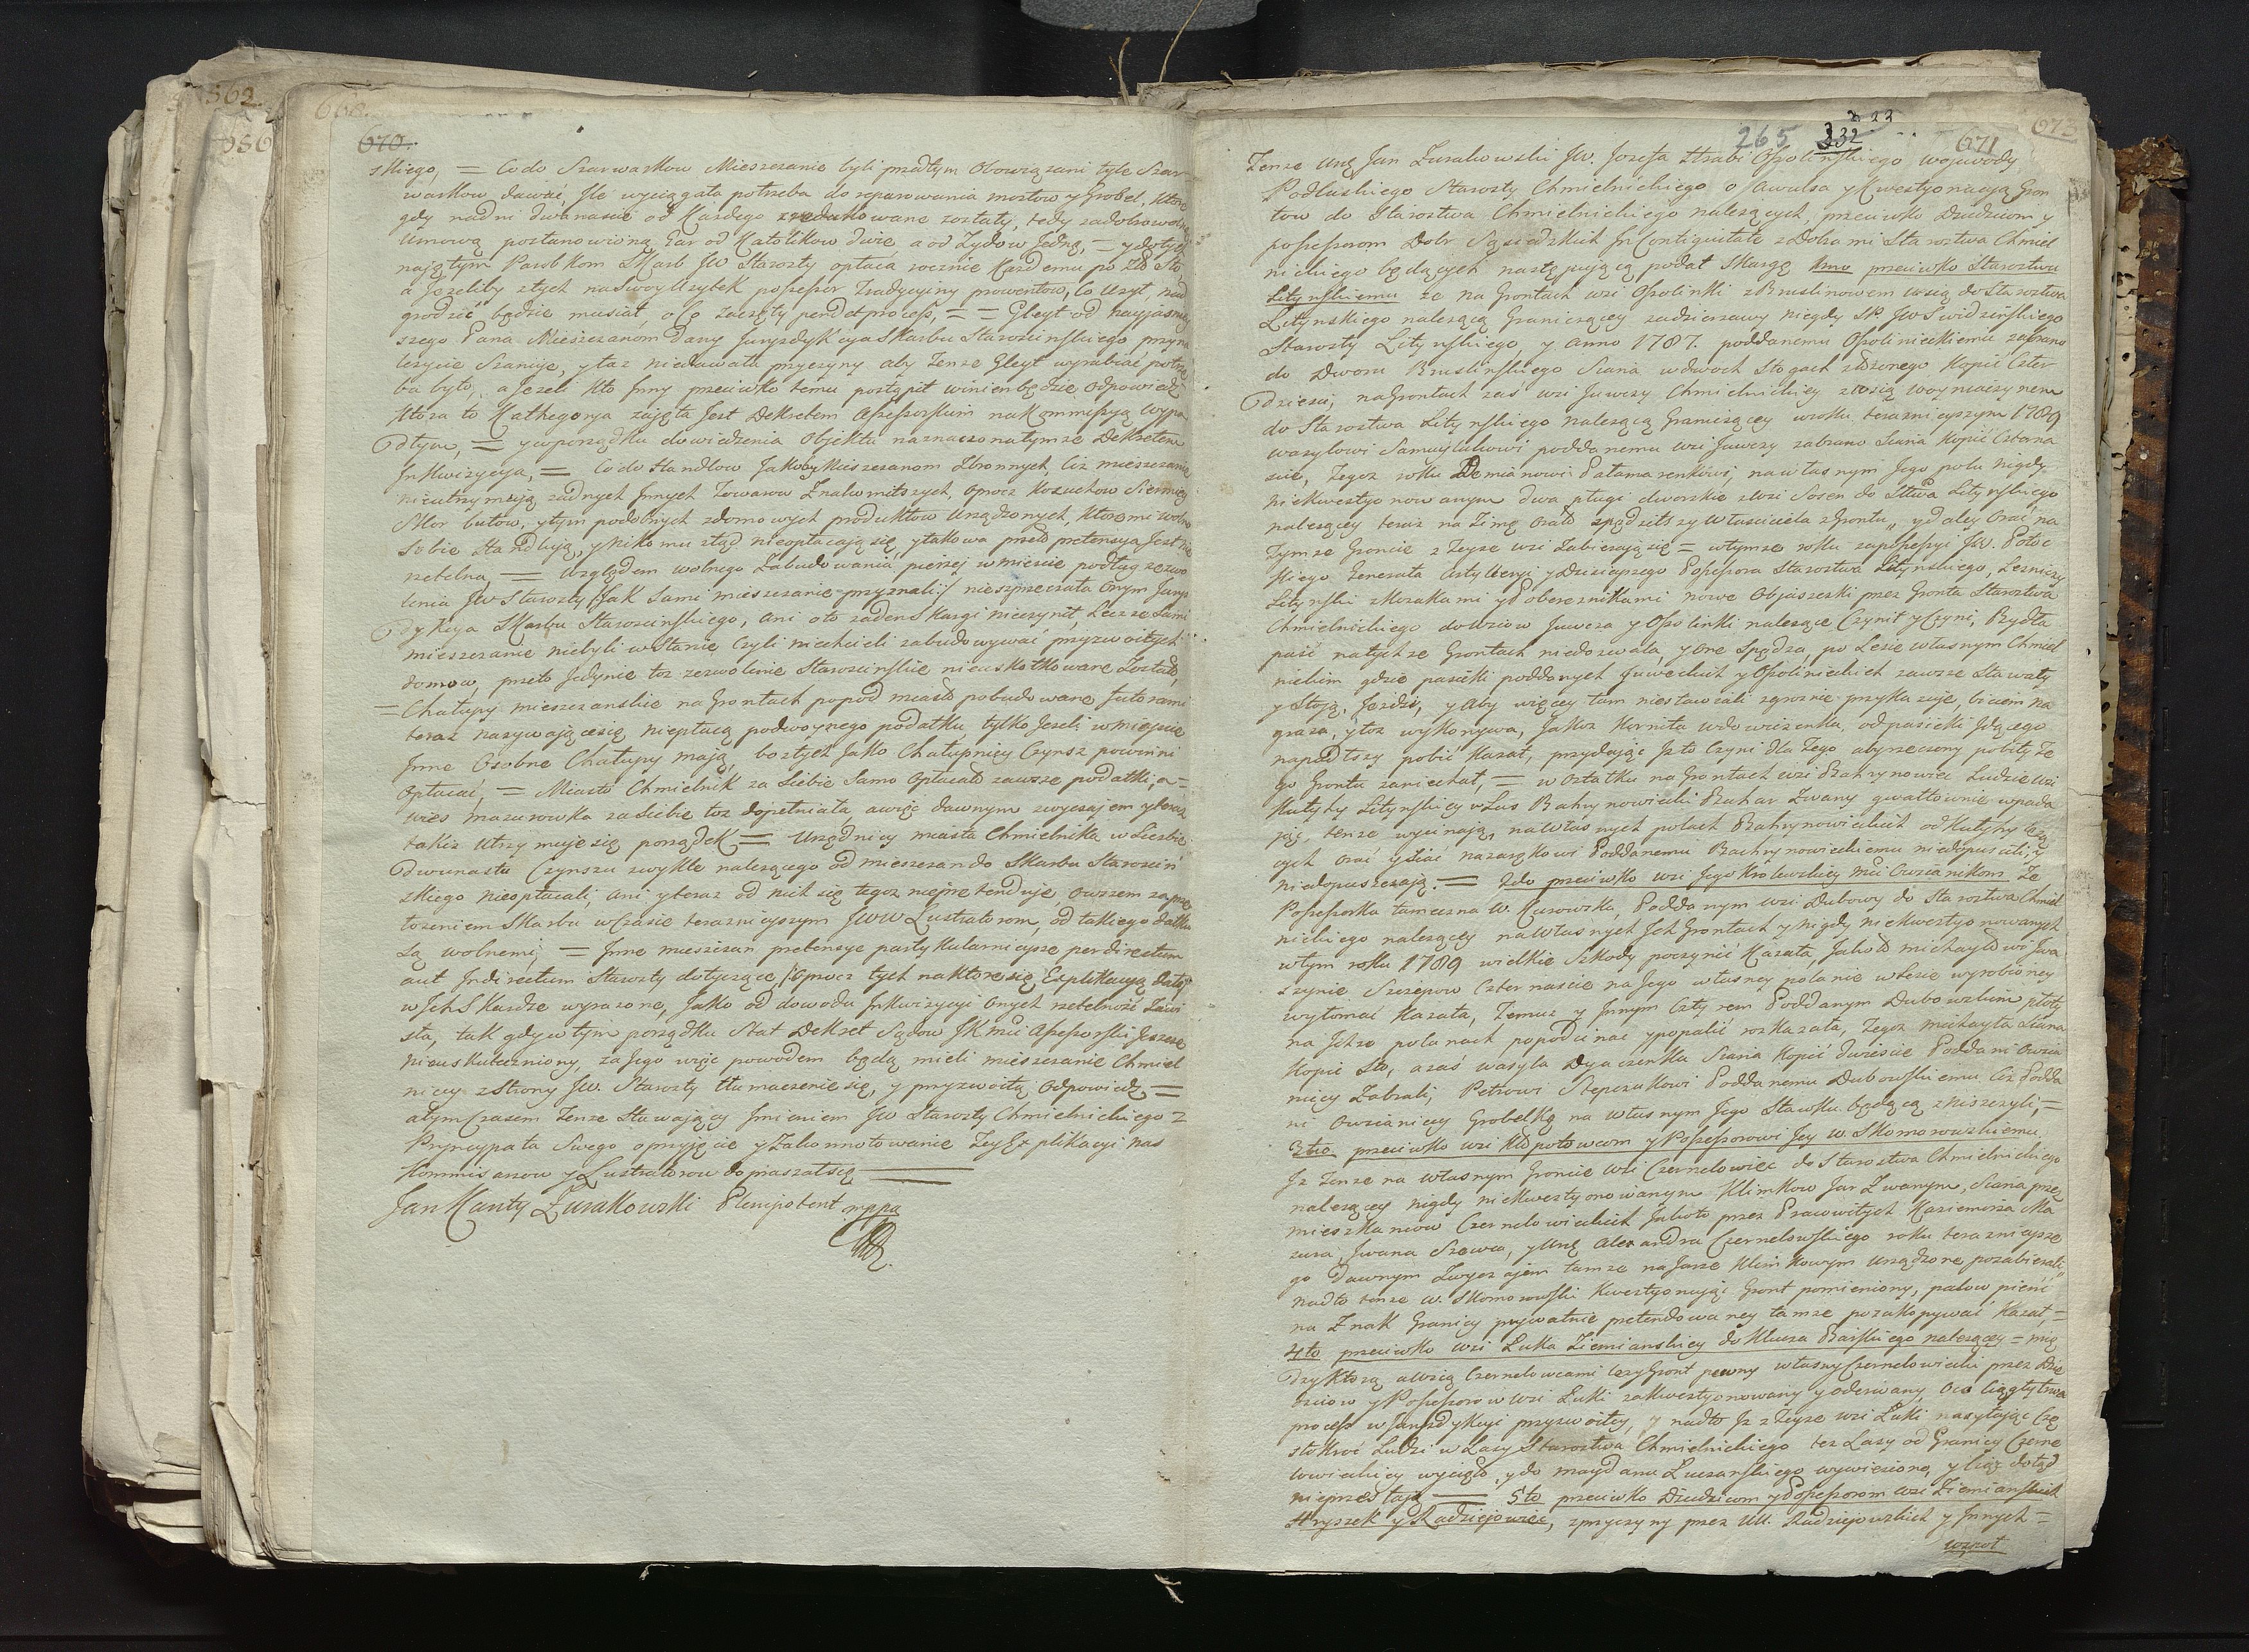 562.
668.
670.
skiego, = Co do Szarwarkow Mieszczanie byli przedtym Obowiązani tyle Szar
warkow dawać, Jle wyciągała potrzeba do reparowania mostow y Grobel, które
gdy na dni dwanascie od Każdego zredukowane zostały, tedy za dobrowolną
Umową postanowioną Par od Katolikow dwie a od Zydow Jedną, =
naiętym Parobkom Skarb JW Starosty opłaca rocznie Każdemu po Zło Sto
a Jezeliby z tych na Swoy Uzytek possessor Tradycyiny prowentow, Co Uzył, nad
grodzić będzie musiał, o Co zaczęty pendet process, = = Gleyt od nayjasniey
szego Pana Mieszczanom dany Juryzdykcya Skarbu Starościnskiego przyna
lezycie Szanuje, y taz niedawała przyczyny aby Tenze Gleyt wyrabiać potrze
ba było, a Jezeli Kto Jnny przeciwko temu postąpił winien będzie Odpowiedź
Która to Kathegorya zajęta Jest Dekretem Assessorskim na Kommissyą wypa
dłym, = y w porządku dowiedzenia Objektu naznaczona tymze Dekretem
Jnkwizycya, = Co do Handlow Jakoby Mieszczanom Zbronnych, Ciż mieszczanie
nieutrzymują zadnych Jnnych Towarow Znakomitszych, oprocz Kozuchow Siermięg
Skor butow, y tym podobnych z domowych produktow Urządzonych, któremi wolno
Sobie Handlują, y nikomu ztąd nieopłacają się, y takowa przeto pretensya Jest nie
rzetelna, = Względem wolnego Zabudowania pierzei w miescie podług zezwo
lenia JW Starosty /: Jak Sami mieszczanie przyznali :/ nieszprzeczała Onym Jurys
dykcya Skarbu Starościnskiego, ani o to zaden Skargi nieczynił, Lecz ze Sami
mieszczanie niebyli w Stanie Czyli niechcieli zabudowywać przyzwoitych
domow, przeto Jedynie toz zezwolenie Starościnskie nieuskutkowane Zostało,
= Chałupy mieszczanskie na Grontach popod miasto pobudowane futorami
teraz nazywającesię niepłacą podwoynego podatku tylko Jezeli w miescie
Jnne Osobne Chałupy mają, bo z tych Jako Chałupnicy Czynsz powinni
Opłacać, = Miasto Chmielnik za Siebie Samo Opłacało zawsze podatki, a =
wies mazurowka za Siebie toz dopełniała, a więc dawnym zwyczajem y teraz
takiz Utrzymuje się porządek = Urzędnicy miasta Chmielnika w Liczbie
dwunastu Czynszu zwykle nalezącego od mieszczan do Skarbu Starościn
skiego nieopłacali, ani y teraz od nich się tegoz niepretenduje, owszem za prze
łozeniem Skarbu w Czasie teraznieyszym JWW Lustratorom, od takiego datku
Są wolnemi, = Jnne mieszczan pretensye partykularnieysze per directum
aut Jndirectum Starosty dotyczące /: oprocz tych na które się Explikacyą dało :/
w Jch Skardze wyrazone, Jako od dowodu Jnkwizycyi Onych rzetelność Zawi
sła, tak gdy w tym porządku Stał Dekret Sądow JKmci Assessorski Jeszcze
nieuskuteczniony, za Jego więc powodem będą mieli mieszczanie Chmiel
niccy z Strony JW. Starosty tłumaczenie się, y przyzwoitą Odpowiedź =
a tym Czasem Tenze Stawający Jmieniem JW Starosty Chmielnickiego z
Pryncypała Swego o przyjęcie y Zakonnotowanie Teyze Explikacyi nas
Kommissarzow y Lustratorow dopraszał się
Jan Kanty Zurakowski Plenipotent mppa
265 332 223 671 673
Tenze Urę Jan Zurakowski JW. Jozefa Hrabi Ossolinskiego Wojewody
Podlaskiego Starosty Chmielnickiego o Awulsa y Kwestyonacyą Gron
tow do Starostwa Chmielnickiego nalezących, przeciwko Dziedzicom y
possessorom Dobr Sąsiedzkich Jn Contiguitate z Dobrami Starostwa Chmiel
nickiego będących następującą podał Skargę 1mo przeciwko Starostwu
Litynskiemu ze na Grontach wsi Ossolinki z Bruslinowem wsią do Starostwa
Litynskiego nalezącą Graniczącey zadzierzawy niegdy SP. JW Swidzinskiego
Starosty Litynskiego y Anno 1787. poddanemu Ossolinieckiemu zabrano
do Dworu Bruslinskiego Siana w dwoch Stogach złozonego Kopić Czter
dziesci, na Grontach zaś wsi Juwczy Chmielnickiey z wsią Woynaczynem
do Starostwa Litynskiego nalezącą Graniczącey w roku teraznieyszym 1789
Wasylowi Samuylukowi poddanemu wsi Juwczy zabrano Siana Kopić Czterna
scie, Tegoz roku Demianowi Pałamarenkowi, na własnym Jego polu nigdy
niekwestyonowanym dwa pługi dworskie z wsi Sosen do Sttwa Litynskiego
nalezącey teraz na Zimę orało spędziłszy własciciela z Grontu, y daley Orać na
Tymze Groncie z Teyze wsi Zabierają się = w tymze roku za possessyi JW. Potoc
kiego Generała Artylleryi y Dzisieyszego Possessora Starostwa Litynskiego, Lesniczy
Litynski z Kozakami y Pobereznikami nowe Objaszczki przez Gronta Starostwa
Chmielnickiego do wsiow Juwcza y Ossolinki nalezące Czynił y Czyni, Bydła
paść na tychze Grontach niedozwala, y one Spędza, po Lesie własnym Chmiel
nickim gdzie pasieki poddanych Juweckich y Ossolinieckich zawsze Stawały
y Stoją, Jezdzi, y aby więcey tam niestawiali zgroznie przykazuje, biciem na
graza, y toz wykonywa, Jakoz Kornita wdowiczenka, od pasieki Jdącego
napadłszy pobić Kazał, przydając Jz to Czyni dla Tego aby rzeczony pobity Te
go Grontu zaniechał, = w ostatku na Grontach wsi Bahrynowiec Ludzie wsi
Kutyhy Litynskiey w Las Bahrynowiecki Bzuhar Zwany gwałtownie wpada
jąc, tenze wycinają, na własnych polach Bahrynowieckich od Kutyhy lezą
cych orać y siać nazaszkowi Poddanemu Bachrynowieckiemu niedopuscili, y
niedopuszczają. = 2do przeciwko wsi Jego Królewskiey mci Owsianikom Ze
Possessorka tameczna W. Kurowska, Poddanym wsi Dubowy do Starostwa Chmiel
nickiego nalezącey na własnych Jch Grontach y nigdy niekwestyonowanych
w tym roku 1789 wielkie Szkody poczynić Kazała, Jakoto michayłowi Jwa
szynie Szczepow Czternascie na Jego własney polanie w Lesie wyrobioney
wyłomać Kazała, Temuz y Jnnym Czterem Poddanym Dubowskim płoty
na Jchze polanach popoducinać y popalić rozkazała, Tegoz michayła Siana
Kopić Sto, a zaś Wasyla Dyaczenka Siana Kopić dwiescie Poddani Owsia
niccy Zabrali, Petrowi Stepczakowi Poddanemu Dubowskiemu Ciż Podda
ni Owsianiccy Grobelkę na własnym Jego Stawku będącą zniszczyli, =
3tio przeciwko wsi Kłopotowcom y Possessorowi Jey W. Skomorowskiemu
Jz Tenze na własnym Groncie wsi Czernelowiec do Starostwa Chmielnickiego
nalezącey nigdy niekwestyonowanym Klimkow Jar Zwanym, Siana przez
mieszkancow Czernelowieckich Jakoto przez Pracowitych Kazimierza Ma
zura, Jwana Szewca, y Urę Alexandra Czernelowskiego roku teraznieysze
go Dawnym Zwyczajem tamze na Jarze Klimkowym Urządzone pozabierał,
nadto tenze W. Skomorowski Kwestyonując Gront pomieniony, palow pienć
na Znak Granicy prywatnie pretendowaney tamze pozakopywać Kazał =
4to przeciwko wsi Łuka Ziemianskiey do Klucza Barskiego nalezącey = mię
dzy Którą a wsią Czernelowcami lezy Gront pewny własny Czernelowiecki przez Dzie
dzicow y Possessorow wsi Łuki zakwestyonowany y oderwany, o co Ciągły trwa
process w Juryzdykcyi przyzwoitey, y nadto Jz z Teyze wsi Łuki nasyłając Czę
stokroć Ludzi w Lasy Starostwa Chmielnickiego też Lasy od Granicy Czerne
lowieckiey wycięto, y do maydanu Łuczanskiego wywieziono, y ciąć dotąd
nieprzestają = 5to przeciwko Dziedzicom y Possessorom wsi Ziemianskich
Hryszek y Radziejowiec, z przyczyny przez UU. Radziejowskich y Jnnych =
wspoł